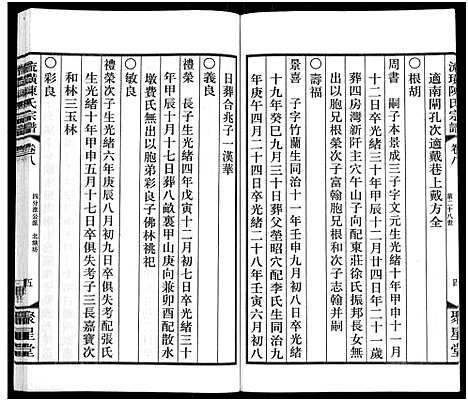 流璜陳氏宗譜 卷八 第二十八世 四 聚星堂
適南閘孔次適戴巷上戴方全
○根胡
周書 嗣子本景成三子字文元生光緒十年甲申十一月
十二日卒光緒三十年甲辰十二月廿四日年二十一歲
葬四房灣新阡主穴午山子向配東莊徐氏振邦長女無
出以胞兄根榮次子富翰胞兄根木次子志翰并嗣
○壽福
景喜 子字竹蘭生同治十一年壬申九月初三日卒光緒
十九年癸巳九月三十日葬父塋昭穴配李氏生同治九
年庚午四月二十八日卒光緒二十八年壬寅六月初八
日葬合兆子一漢華
○義良
禮榮 長子生光緒四年戊寅十二月初七日卒光緒三十
年甲辰十月十七日葬八畝裏甲山庚向兼卯酉配散水
墩費氏無出以胞弟彩良子佛林祧祀
○敏良
禮榮次子生光緒六年庚辰八月初九日卒俱失考配張氏
生光緒十年甲申五月十七日卒俱失考子三長嘉寶次
和林三玉林
○彩良
流璜陳氏宗譜 卷八 五 聚星堂